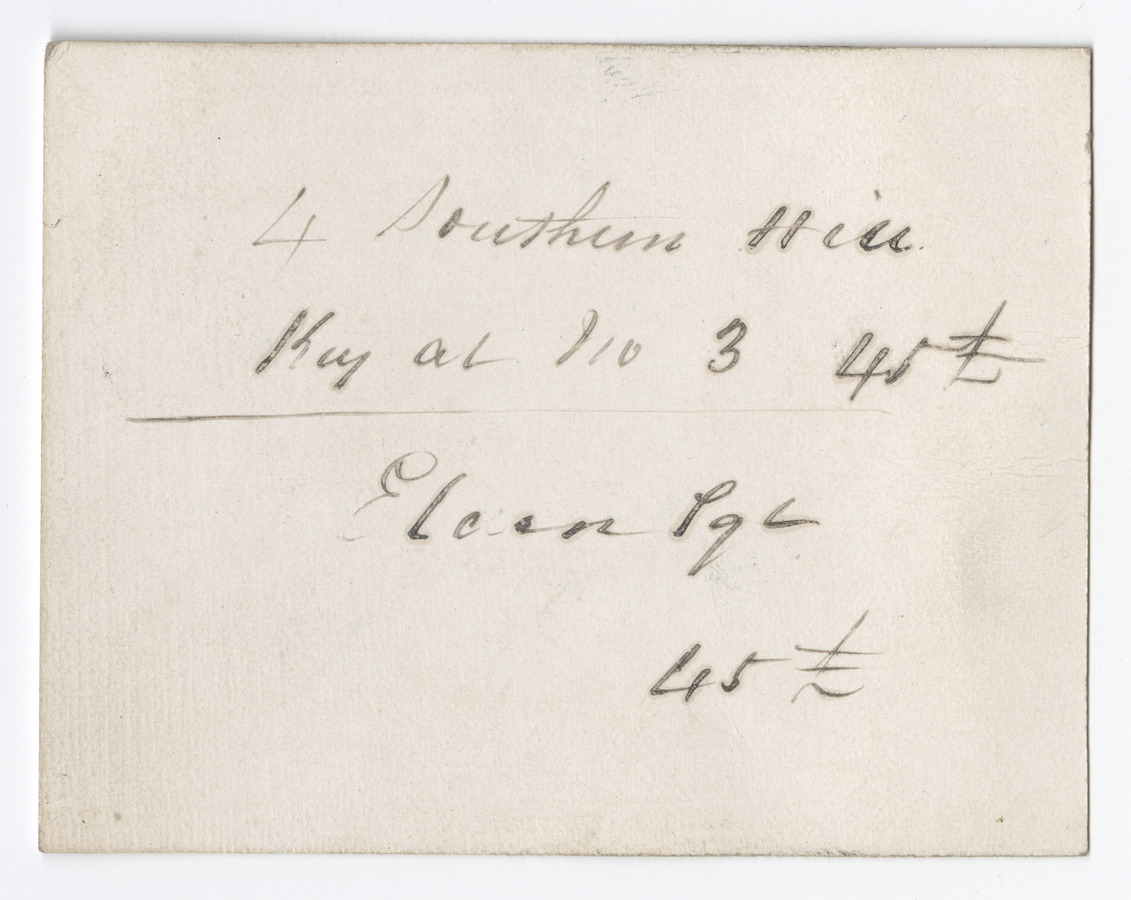 4 Southern Hill
Key at No 3 45 £
Eldon Sqt
45 £